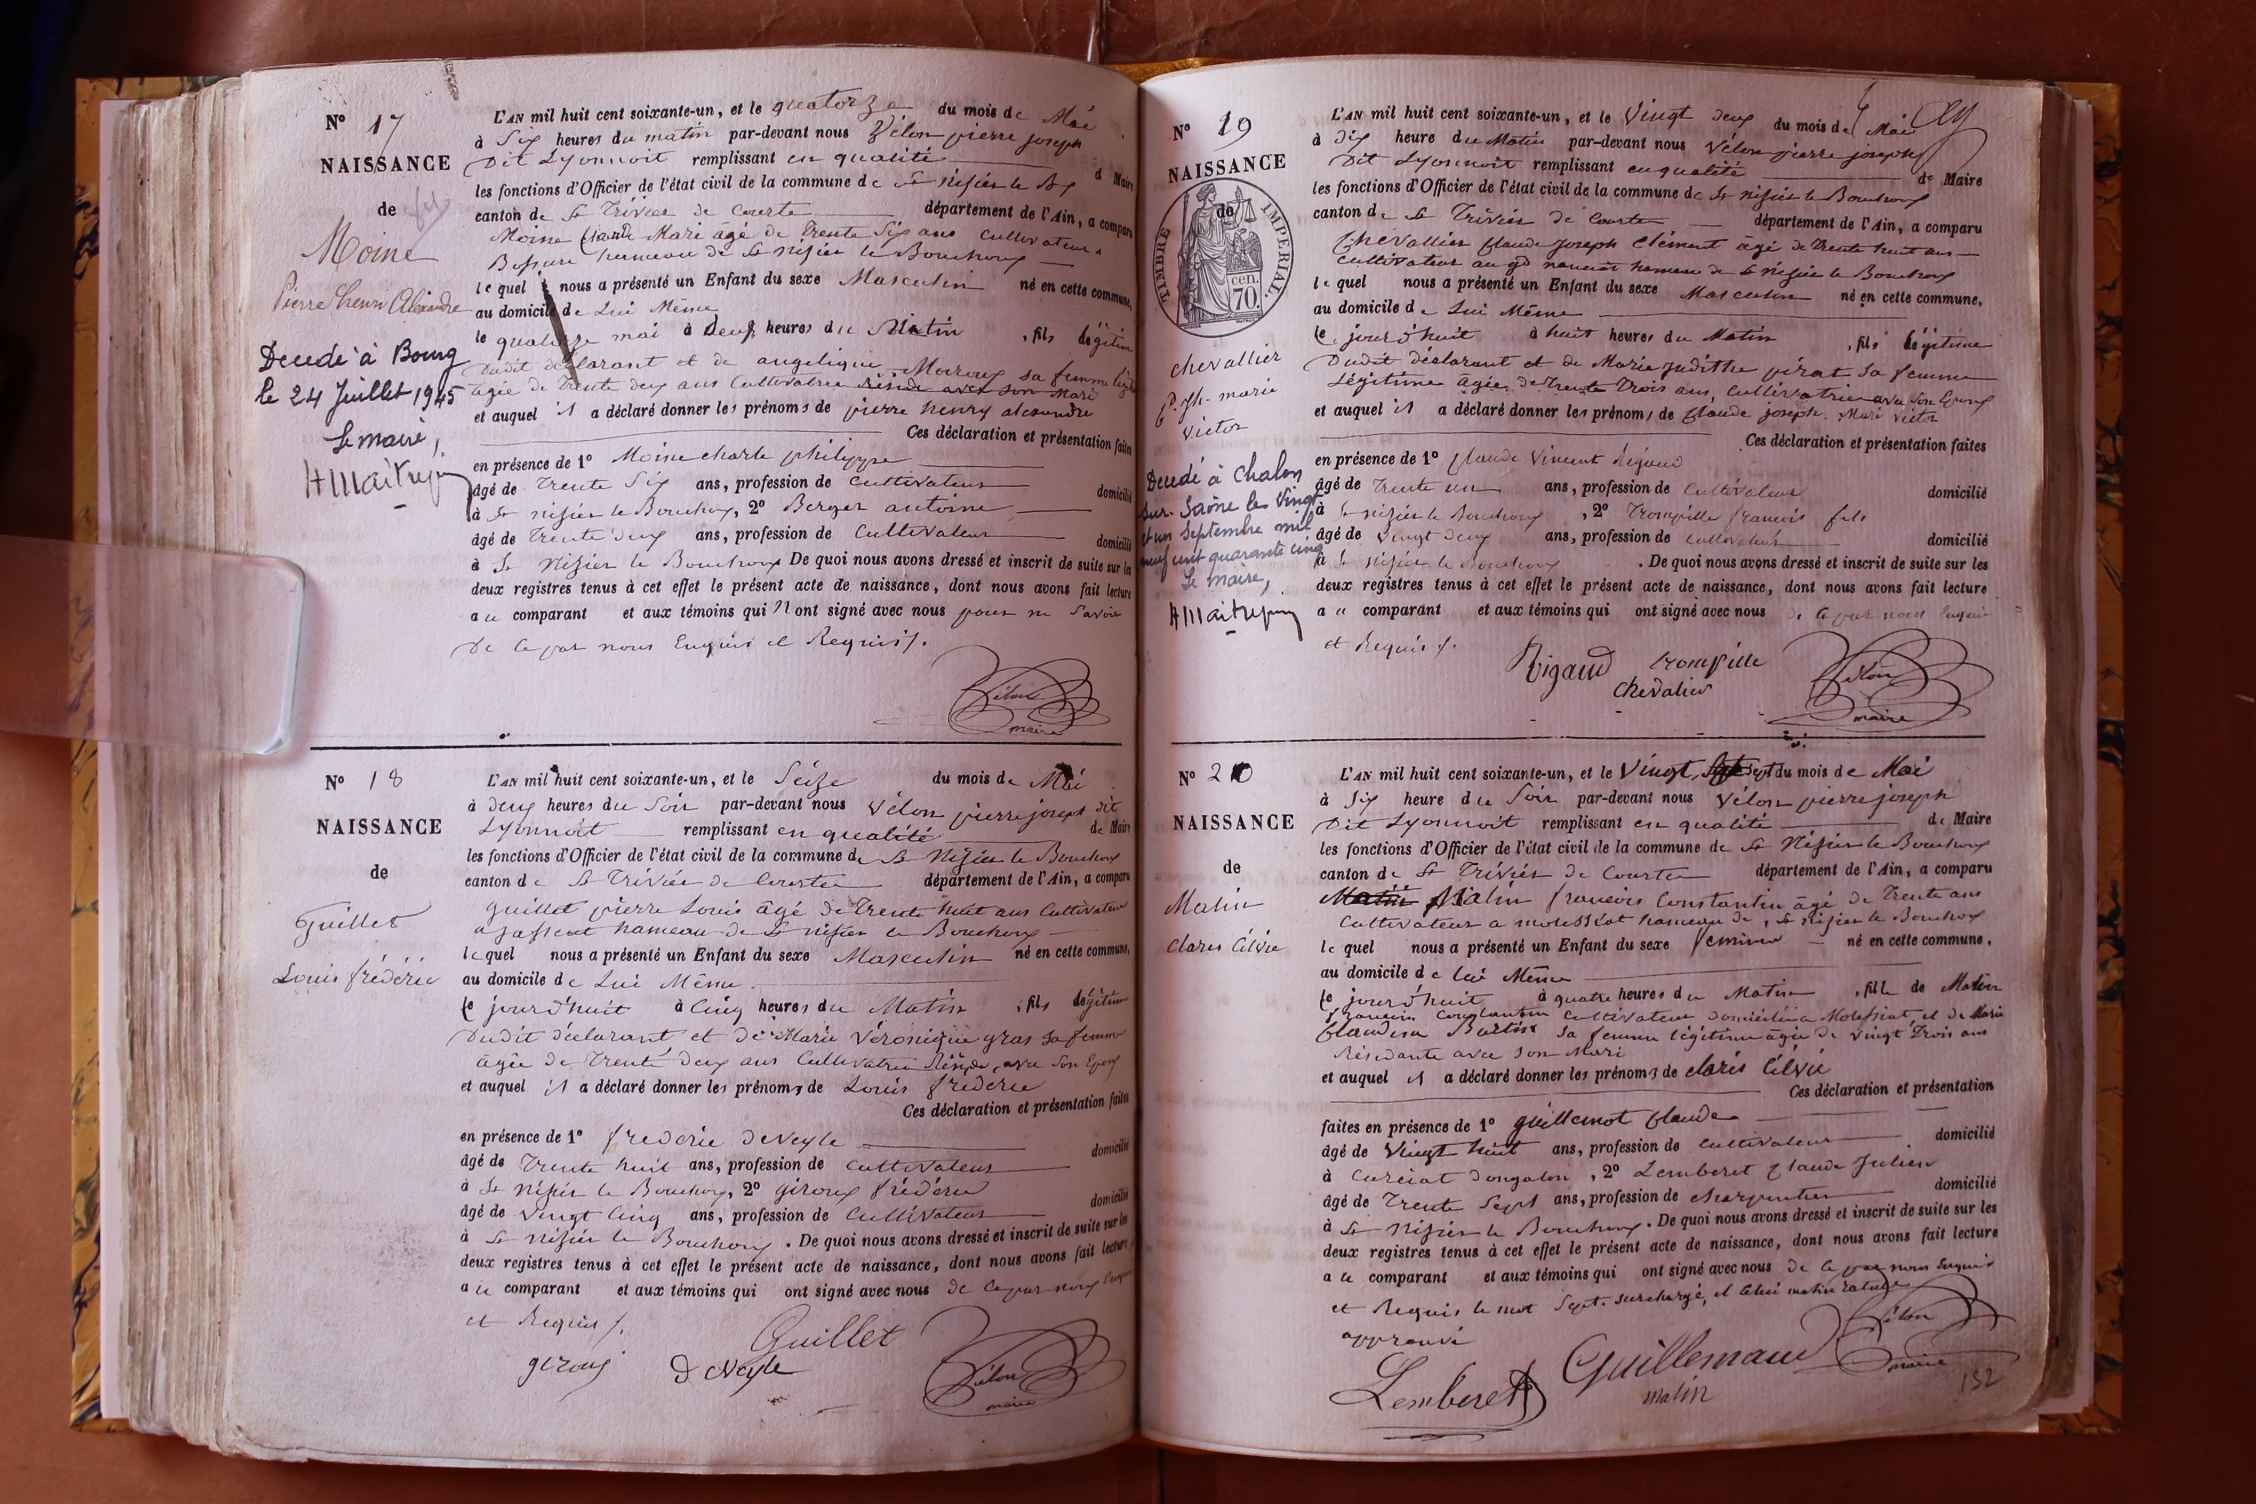 N° 17
NAISSANCE
de
Moine
Pierre henri Alexandre
Decédé à Bourg
le 24 Juillet 1945
Le maire,
HMaitrejean
L'AN mil huit cent soixante-un, et le quatorze du mois de Mai
à Six heures du matin par-devant nous Vélon pierre joseph
Dit Lyonnoit remplissant en qualité de Maire
les fonctions d'Officier de l'état civil de la commune de St Nisier le Bx
canton de St Trivier de Courte département de l'Ain, a comparu
Moine Claude Marie agé de Trente Six ans Cultivateur a
hameau de St Nisier le Bouchoux
lequel nous a présenté un Enfant du sexe Masculin né en cette commune,
au domicile de Lui Même
le quatorze mai à Deux heures du Matin , fils légitime
Dudit déclarant et de angelique Maroux sa femme
agée de Trente deux ans Cultivatrice réside avec son Mari
et auquel il a déclaré donner les prénoms de pierre henry alexandre
Ces déclaration et présentation faites
en présence de 1° Moine charle philippe
âgé de Trente Six ans, profession de Cultivateur domicilié
à St Nisier le Bouchoux, 2° Berger antoine
âgé de Trente deux ans, profession de Cultivateur domicilié
à St Nisier le Bouchoux De quoi nous avons dressé et inscrit de suite sur les
deux registres tenus à cet effet le présent acte de naissance, dont nous avons fait lecture
au comparant et aux témoins qui n ont signé avec nous pour ne Savoir
De ce par nous Enquis et Requis /.
Vélon
maire
N° 18
NAISSANCE
de
Guillet
Louis frédéric
L'AN mil huit cent soixante-un, et le Seize du mois de Mai
à deux heures du Soir par-devant nous Vélon pierre joseph dit
Lyonnoit remplissant en qualité de Maire
les fonctions d'Officier de l'état civil de la commune de St Nizier le Bouchoux
canton de St Trivier de Courte département de l'Ain, a comparu
guillet pierre Louis âgé de Trente huit ans Cultivateur
hameau de St nisier le Bouchoux
lequel nous a présenté un Enfant du sexe Masculin né en cette commune,
au domicile de Lui Même
le jourd'huit à Cinq heures du Matin , fils légitime
Dudit déclarant et de Marie Véronique gras sa femme
âgée de Trente deux ans Cultivatrice Réside avec Son Epoux
et auquel il a déclaré donner les prénoms de Louis frederic
Ces déclaration et présentation faites
en présence de 1° frederic deveyle
âgé de Trente huit ans, profession de Cultivateur domicilié
à St Nisier le Bouchoux, 2° giroux frédéric
âgé de Vingt Cinq ans, profession de Cultivateur domicilié
à St Nisier le Bouchoux . De quoi nous avons dressé et inscrit de suite sur les
deux registres tenus à cet effet le présent acte de naissance, dont nous avons fait lecture
au comparant et aux témoins qui ont signé avec nous de ce par nous Enquis
et Requis /.
Guillet
giroux
Deveyle
Vélon
maire
N° 19
NAISSANCE
de
TIMBRE IMPERIAL.
70 cen.
chevallier
Jph. marie
victor
Decédé à Chalon
Sur Saône le Vingt
et un Septembre mil
neuf cent quarante cinq
Le maire,
HMaitrejean
L'AN mil huit cent soixante-un, et le Vingt deux du mois de Mai
à Dix heure du Matin par-devant nous Vélon pierre joseph
Dit Lyonnoit remplissant en qualité de Maire
les fonctions d'Officier de l'état civil de la commune de St Nizier le Bouchoux
canton de St Trivier de Courte département de l'Ain, a comparu
Chevallier Claude joseph Clément âgé de Trente huit ans
Cultivateur au gd hameau de St Nizier le Bouchoux
lequel nous a présenté un Enfant du sexe Masculin né en cette commune,
au domicile de Lui Même
le jourd'huit à huit heures du Matin , fils légitime
Dudit déclarant et de Marie Judithe pirat sa femme
Légitime âgée de Trente Trois ans, Cultivatrice avec Son Epoux
et auquel il a déclaré donner les prénoms de Claude joseph Marie Victor
Ces déclaration et présentation faites
en présence de 1° Claude Vincent Rigaud
âgé de Trente un ans, profession de Cultivateur domicilié
à St Nizier le Bouchoux , 2° Trompille francois fils
âgé de Vingt deux ans, profession de Cultivateur domicilié
à St Nizier le Bouchoux . De quoi nous avons dressé et inscrit de suite sur les
deux registres tenus à cet effet le présent acte de naissance, dont nous avons fait lecture
au comparant et aux témoins qui ont signé avec nous de ce par nous Enquis
et Requis /.
Rigaud trompille
chevalier
Vélon
maire
N° 20
NAISSANCE
de
Malin
Claris Célvie
L'AN mil huit cent soixante-un, et le Vingt Sept du mois de Mai
à Six heure du Soir par-devant nous Vélon pierre joseph
Dit Lyonnoit remplissant en qualité de Maire
les fonctions d'Officier de l'état civil de la commune de St Nisier le Bouchoux
canton de St Trivier de Courte département de l'Ain, a comparu
Malin francois Constantin âgé de Trente ans
Cultivateur a molissiat hameau de St Nisier le Bouchoux
lequel nous a présenté un Enfant du sexe feminin né en cette commune,
au domicile de lui Même
le jourd'huit à quatre heures du Matin , fille de Malin
francois Constantin Cultivateur domicilié a Molissiat et de Marie
Claudina sa femme légitime âgée de Vingt Trois ans
Résidante avec Son Mari
et auquel il a déclaré donner les prénoms de claris Célvie
Ces déclaration et présentation
faites en présence de 1° guillemot Claude
âgé de Vingt huit ans, profession de Cultivateur domicilié
à Curciat dongalon , 2° Lemberet Claude Julien
âgé de Trente Sept ans, profession de charpentier domicilié
à St Nisier le Bouchoux. De quoi nous avons dressé et inscrit de suite sur les
deux registres tenus à cet effet le présent acte de naissance, dont nous avons fait lecture
au comparant et aux témoins qui ont signé avec nous de ce par nous Enquis
et Requis le mot Sept. surchargé, et Celui matin raturé
approuvé
Lemberet Guillemaud
malin
Vélon
maire
132